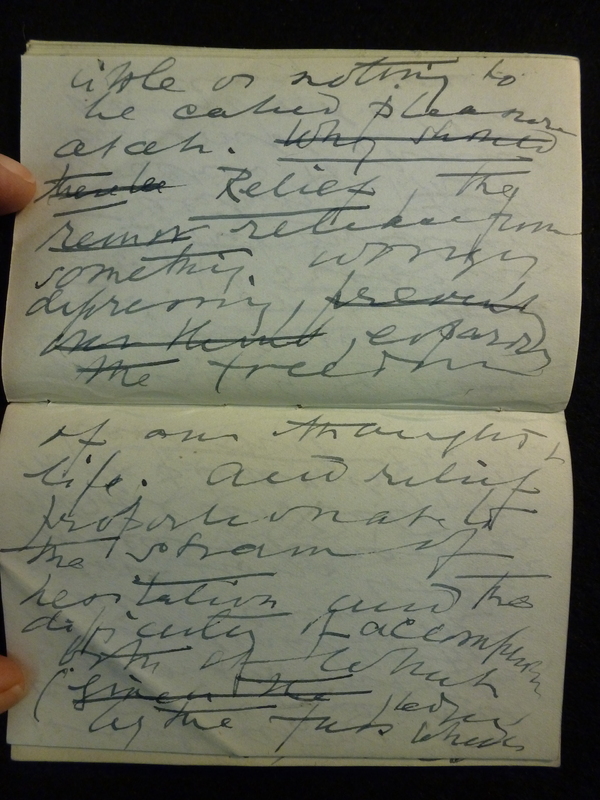 little or nothing to
be called pleasure
at all. Why should
there be Relief, the
release from
something worrying
depressing,
the freedom
of our thought
life. And relief
proportionate to
the strain of
hesitation and the
difficulty of
both of what
(Since the
by the facts which